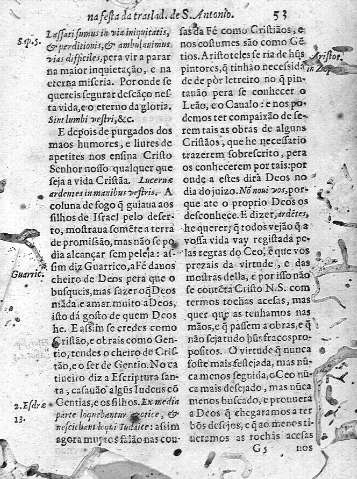 na festa da traslad. de S. Antonio. 53
Sap. 5.
Lassati sumus in via iniquitatis,
& perditionis, & ambulauimus
vias difficiles, pera vir a parar
na maior inquietação, e na
eterna miseria. Por onde se
quereis segurar descāço nes-
ta vida, e o eterno da gloria.
Sint lumbi vestri, &c.
E depois de purgados dos
maos humores, e liures de
apetites nos ensina Cristo
Senhor nosso qualquer que
seja a vida Cristāa. Lucernæ
ardentes in manibus vestris. A
coluna de fogo q̃ guiaua aos
filhos de Israel pelo deser-
to, mostraua somēte a terra
de promissão, mas não se po
dia alcançar sem peleja: as-
Guarric.
sim diz Guarrico, a Fé danos
cheiro de Deus pera que o
busqueis, mas fazer q̃ Deos
māde a amar muito a Deos,
isto dá gosto de quem Deos
he. E assim se credes como
Cristão, e obrais como Gen-
tio, tendes o cheiro de Cris-
tão, e o ser de Gentio. No ca
tiueiro diz a Escriptura san-
ta, casauão algũs Iudeus cō
Gentias, e os filhos. Ex media
2. Esdræ
13.
parte loquebantur Azotice, &
nesciebant loqui Iudaice: assim
agora muitos falão nas cou-
sas da Fé como Cristãos, e
nos costumes são como Gē-
tios. Aristoteles se ria de hũs
Aristot.
pintores, q̃ tinhão necessida
de de pór letreiro no q̃ pin-
tauão pera se conhecer o
Leão, e o Caualo: e nos po-
demos ter compaixão de se-
rem tais as obras de alguns
Cristãos, que he necessario
trazerem sobrescrito, pera
os conhecerem por tais: por
onde a estes dirá Deos no
dia do juizo. Nõ noui vos, por-
que ate o proprio Deos os
desconhece. E dizer, ardētes,
he querer, q̃ todos vejão q̃ a
vossa vida vay registada pe-
las regras do Ceo, e que vos
prezais da virtude, e das
mostras della, e por isso não
se contēta Cristo N.S. com
termos tochas acesas, mas
quer que as tenhamos nas
mãos, e q̃ passem a obras, e q̃
não seja tudo hũs fracos pro-
positos. O virtude q̃ nunca
foste mais festejada, mas nũ-
ca menos seguida, o Ceo nũ-
ca mais desejado, mas nũca
menos buscado, e prouuera
a Deos q̃ chegaramos a ter
bõs desejos, e q̃ ao menos ti-
ueramos as tochas acesas
G 5 nos